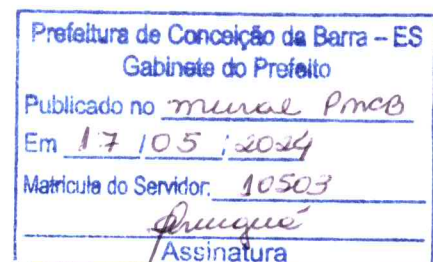 Prefeitura de Conceição da Barra – ES
Gabinete do Prefeito
Publicado no mural PMCB
Em 17 / 05 / 2024
Matricula do Servidor: 10503
Assinatura